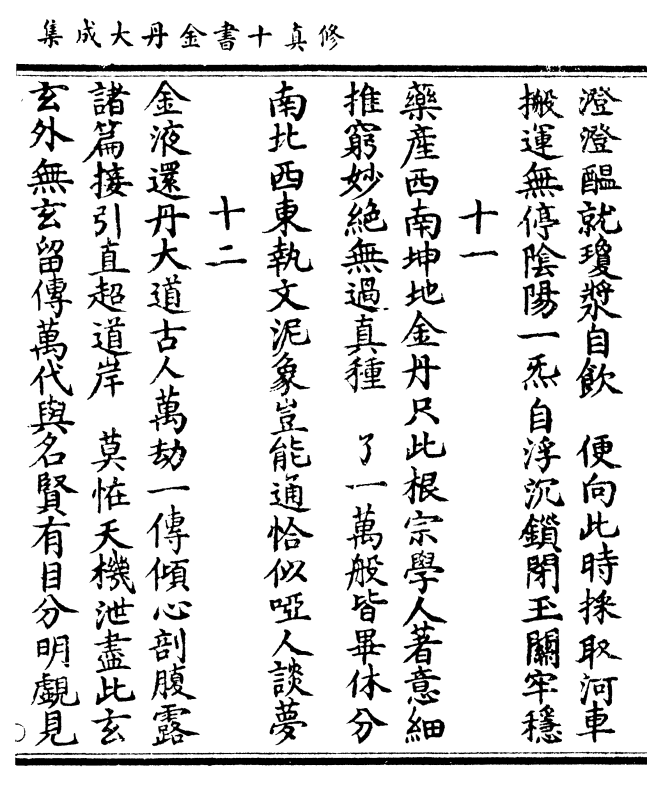 修真十書金丹大成集
澄澄醖就瓊漿自飲　便向此時採取河車
搬運無停陰陽一炁自浮沉鎖閉玉關牢穩
十一
藥產西南坤地金丹只此根宗學人著意細
推窮妙絶無過真種　了一萬般皆畢休分
南北西東執文泥象豈能通恰似啞人談夢
十二
金液還丹大道古人萬劫一傳傾心剖腹露
諸篇接引直超道岸　莫恠天機泄盡此玄
玄外無玄留傳萬代與名賢有目分明覷見